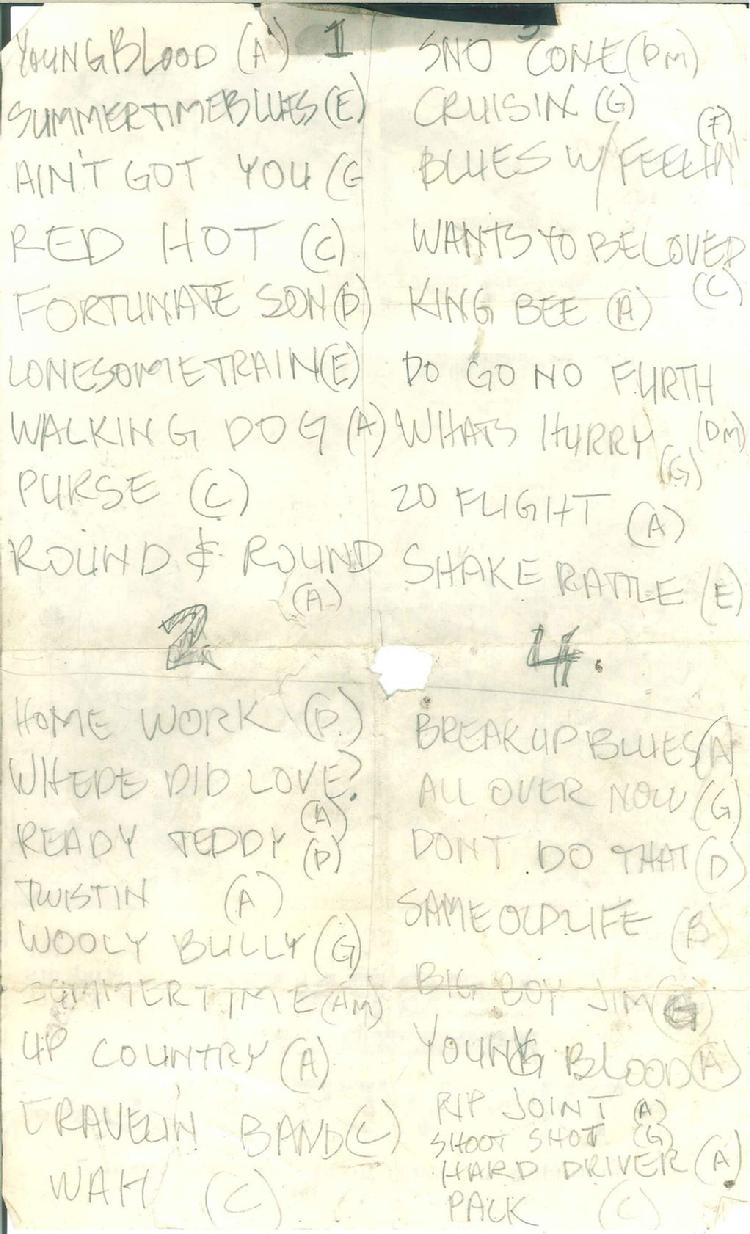 1
YOUNGBLOOD (A)
SUMMERTIMEBLUES (E)
AIN'T GOT YOU (G
RED HOT (C)
FORTUNATE SON (D)
LONESOMETRAIN (E)
WALKING DOG (A)
PURSE (C)
ROUND & ROUND
(A)
2.
HOME WORK (D)
WHERE DID LOVE?
(A)
READY TEDDY (D)
TWISTIN (A)
WOOLY BULLY (G)
SUMMERTIME (AM)
UP COUNTRY (A)
TRAVELIN BAND (C)
WAH (C)
3
SNO CONE (DM)
CRUISIN (G)
(F)
BLUES W/ FEELIN'
WANTS TO BE LOVED
(C)
KING BEE (A)
DO GO NO FURTH
(DM)
WHATS HURRY
(G)
20 FLIGHT (A)
SHAKE RATTLE (E)
4.
BREAKUP BLUES (A)
ALL OVER NOW (G)
DONT DO THAT (D)
SAME OLD LIFE (B)
BIG BOY JIM G
YOUNG BLOOD (A)
RIP JOINT (A)
SHOOT SHOT (G)
HARD DRIVER (A)
PACK (C)